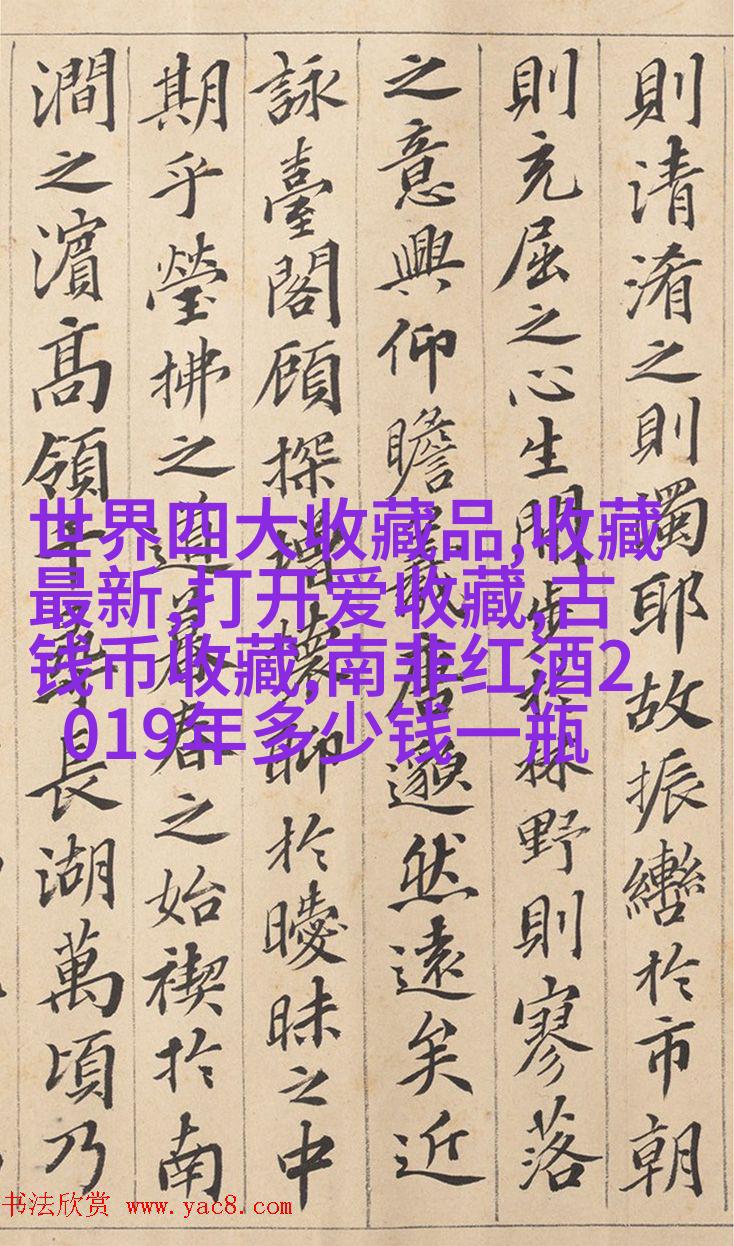 則清淆之則濁耶故振轡於市朝
則充屈之心生閒步於林野則寥落
之意興仰瞻羲唐邈然遠矣近
詠臺閣顾探增懷聊於曖昧之中
期乎瑩拂之道暮春之始禊於南
澗之濱髙領千尋長湖萬頃乃
世界四大收藏品,收藏
最新,打开爱收藏,古
钱币收藏,南非红酒2
019年多少钱一瓶
书法欣赏 www.yac8.com